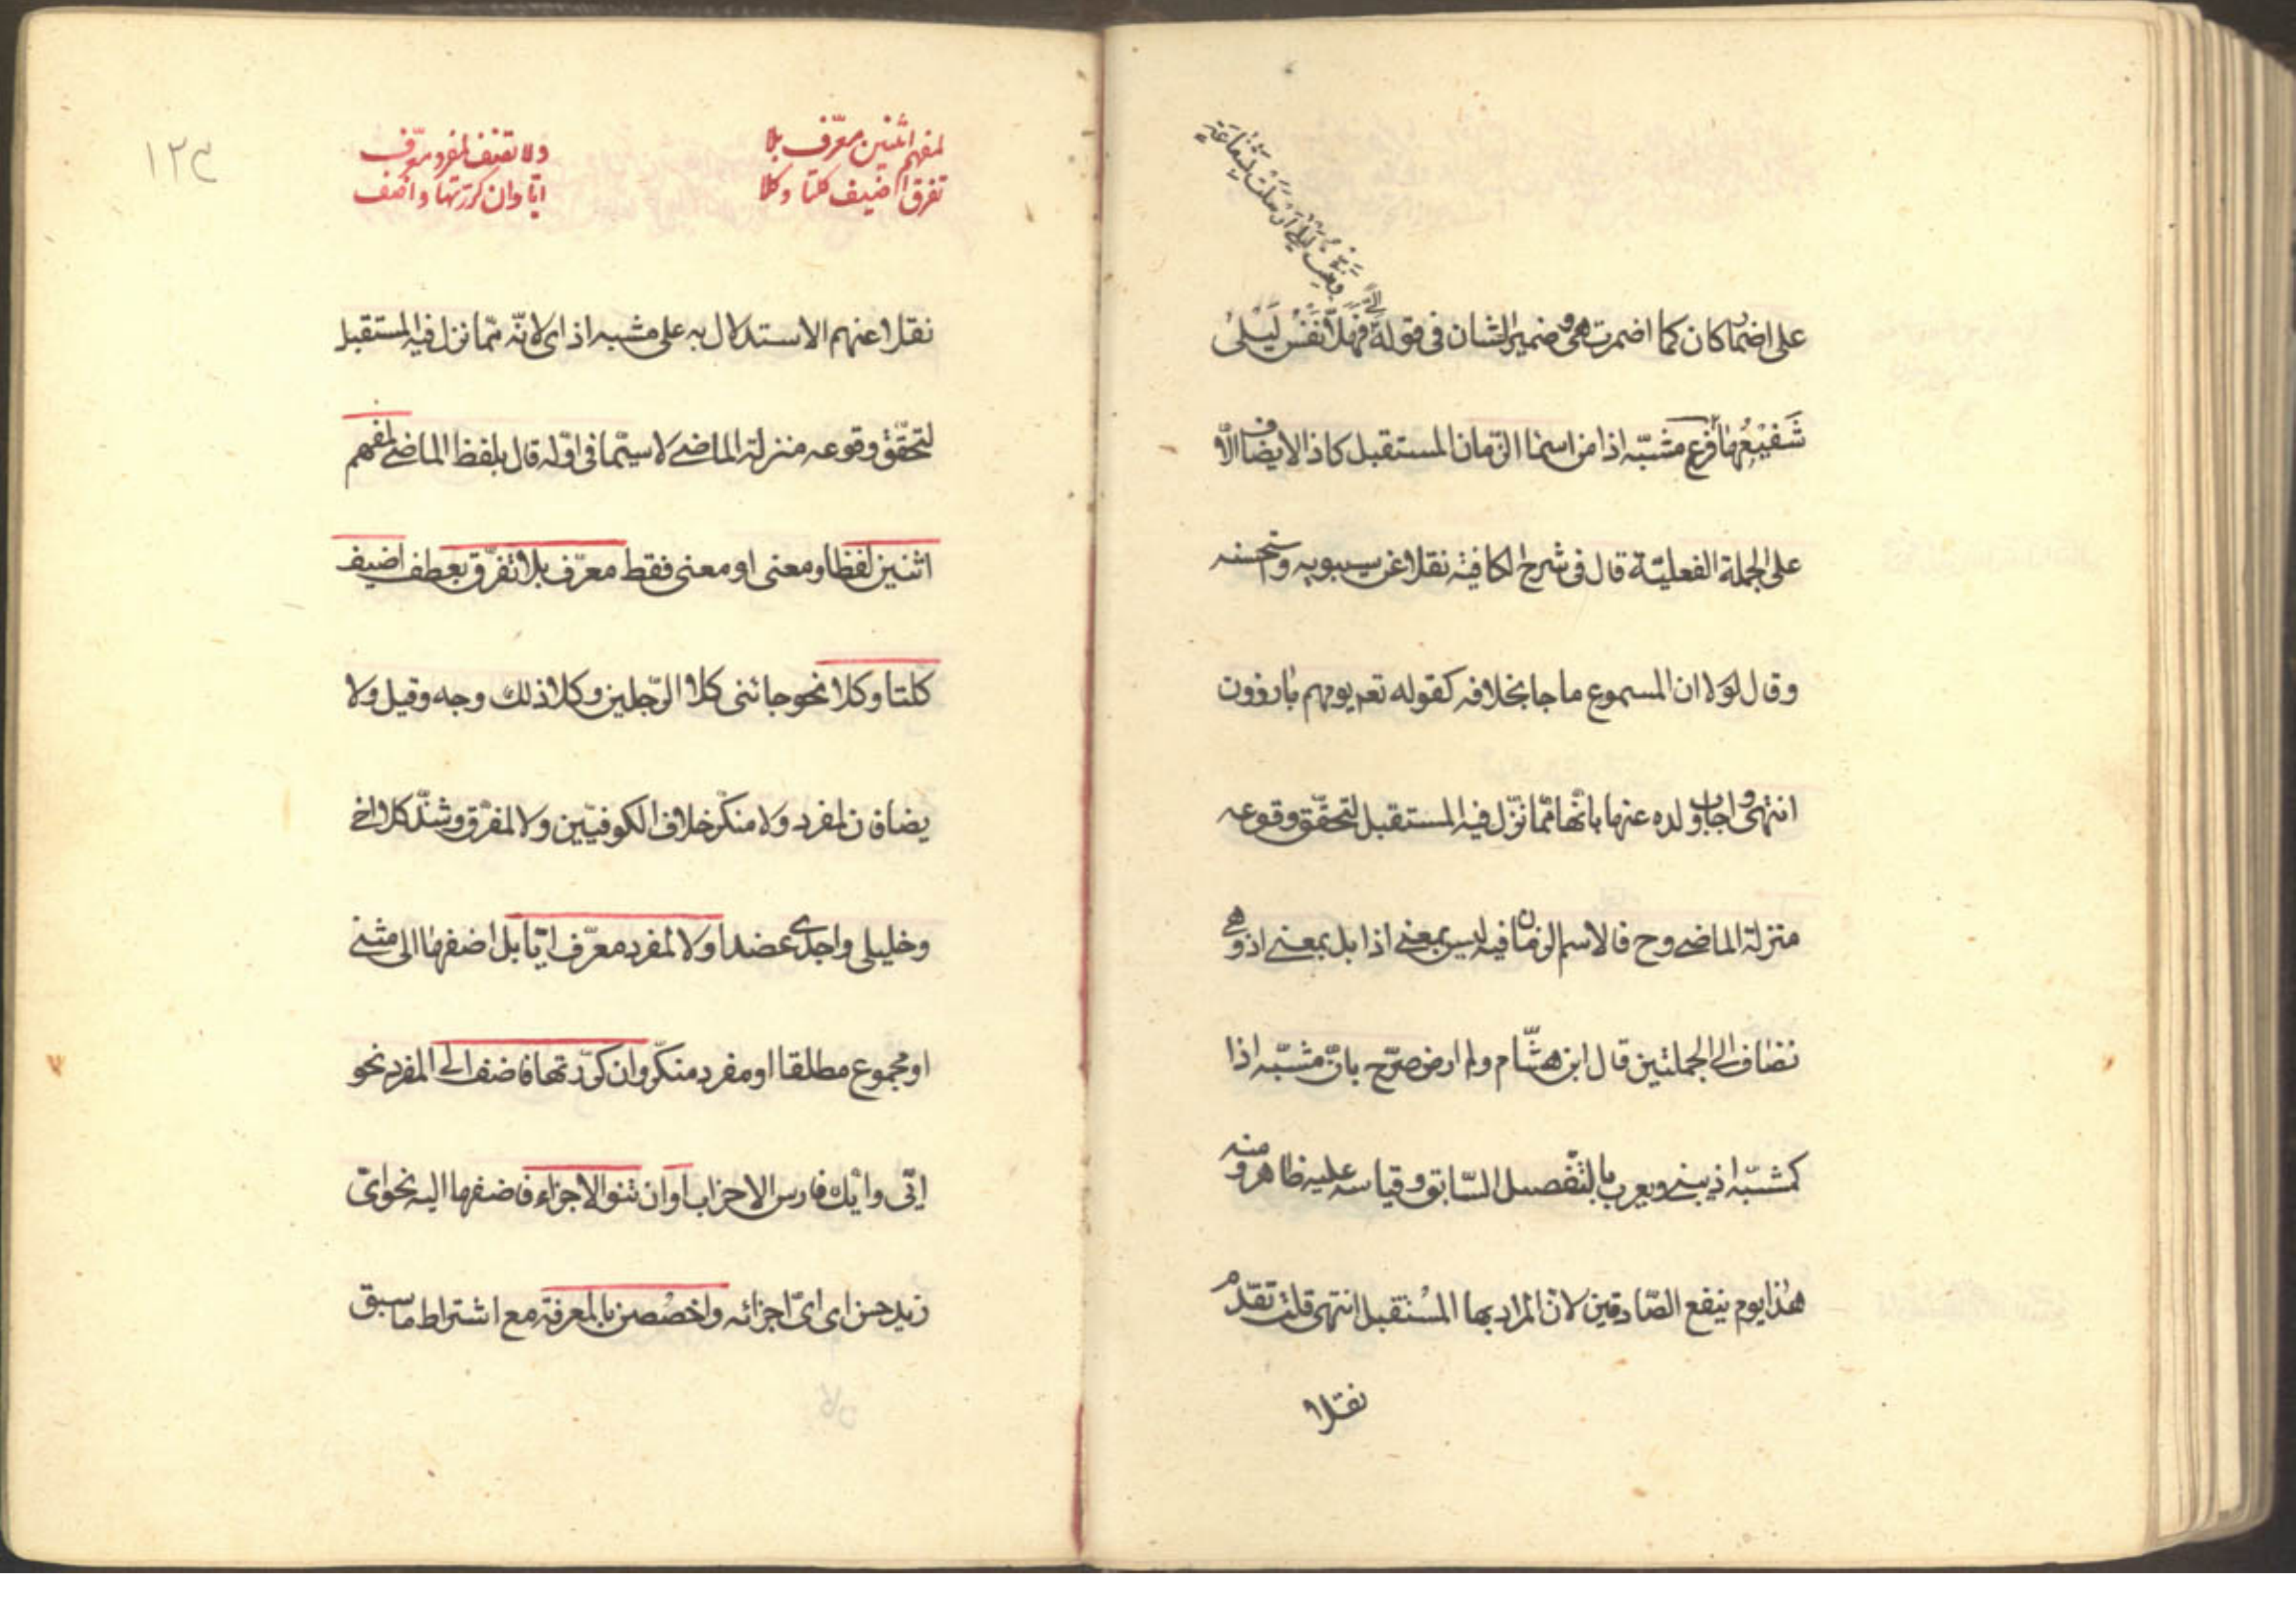 ونبّئت ليلى ارسلت بشفاعة
اليّ
على اضمار كان كما اضمرت هى وضمير الشان فى قوله فهلّا نفس ليلى
شفيعها فرع مشبّه اذا من اسماء الزّمان المستقبل كاذا لا يضاف الّا
على الجملة الفعليّة قال فى شرح الكافية نقلا عن سيبويه واستحسنه
وقال لولا ان المسموع ما جا بخلافه كقوله تعم يوم هم بارزون
انتهى واجاب ولده عنها بانّها ممّا نزّل فيه المستقبل لتحقّق وقوعه
منزلة الماضى وح فالاسم الزمان فيه ليس بمعنى اذا بل بمعنى اذ وهى
تضاف الى الجملتين قال ابن هشام ولم ار من صرّح بانّ مشبّه اذا
كمشبّه اذ يبنى ويعرب بالتّفصيل السّابق وقياسه عليه ظاهر ومنه
هذا يوم ينفع الصّادقين لانّ المراد بها المستقبل انتهى قلت تقدّم
نقلا
١٢٣
لمفهم اثنين معرّف بلا
تفرق اضيف كلتا وكلا
ولا تضف لمفرد معرّف
ايّا وان كررتها فاضف
نقلا عنهم الاستدلال به على مشبه اذ اى لانّه ممّا نزل فيه المستقبل
لتحقّق وقوعه منزلة الماضى لا سيّما فى اوّله قال بلفظ الماضى لمفهم
اثنين لفظا ومعنى او معنى فقط معرّف بلا تفرّق بعطف اضيف
كلتا وكلا نحو جائنى كلا الرّجلين وكلا ذلك وجه وقبل ولا
يضافان لمفرد ولا منكّر خلاف الكوفيّين ولا لمفرّق وشذّ كلا اخى
وخليلى واجدى عضدا ولا لمفرد معرّف ايّا بل اضفها الى مثنى
او مجموع مطلقا او مفرد منكّر وان كرّرتها فاضف الى المفرد نحو
ايّى وايّك فارس الاحزاب او ان تنو الاجزاء فاضفها اليه نحو اىّ
زيد حسن اى اىّ اجزائه واخصصن بالمعرفة مع اشتراط ما سبق